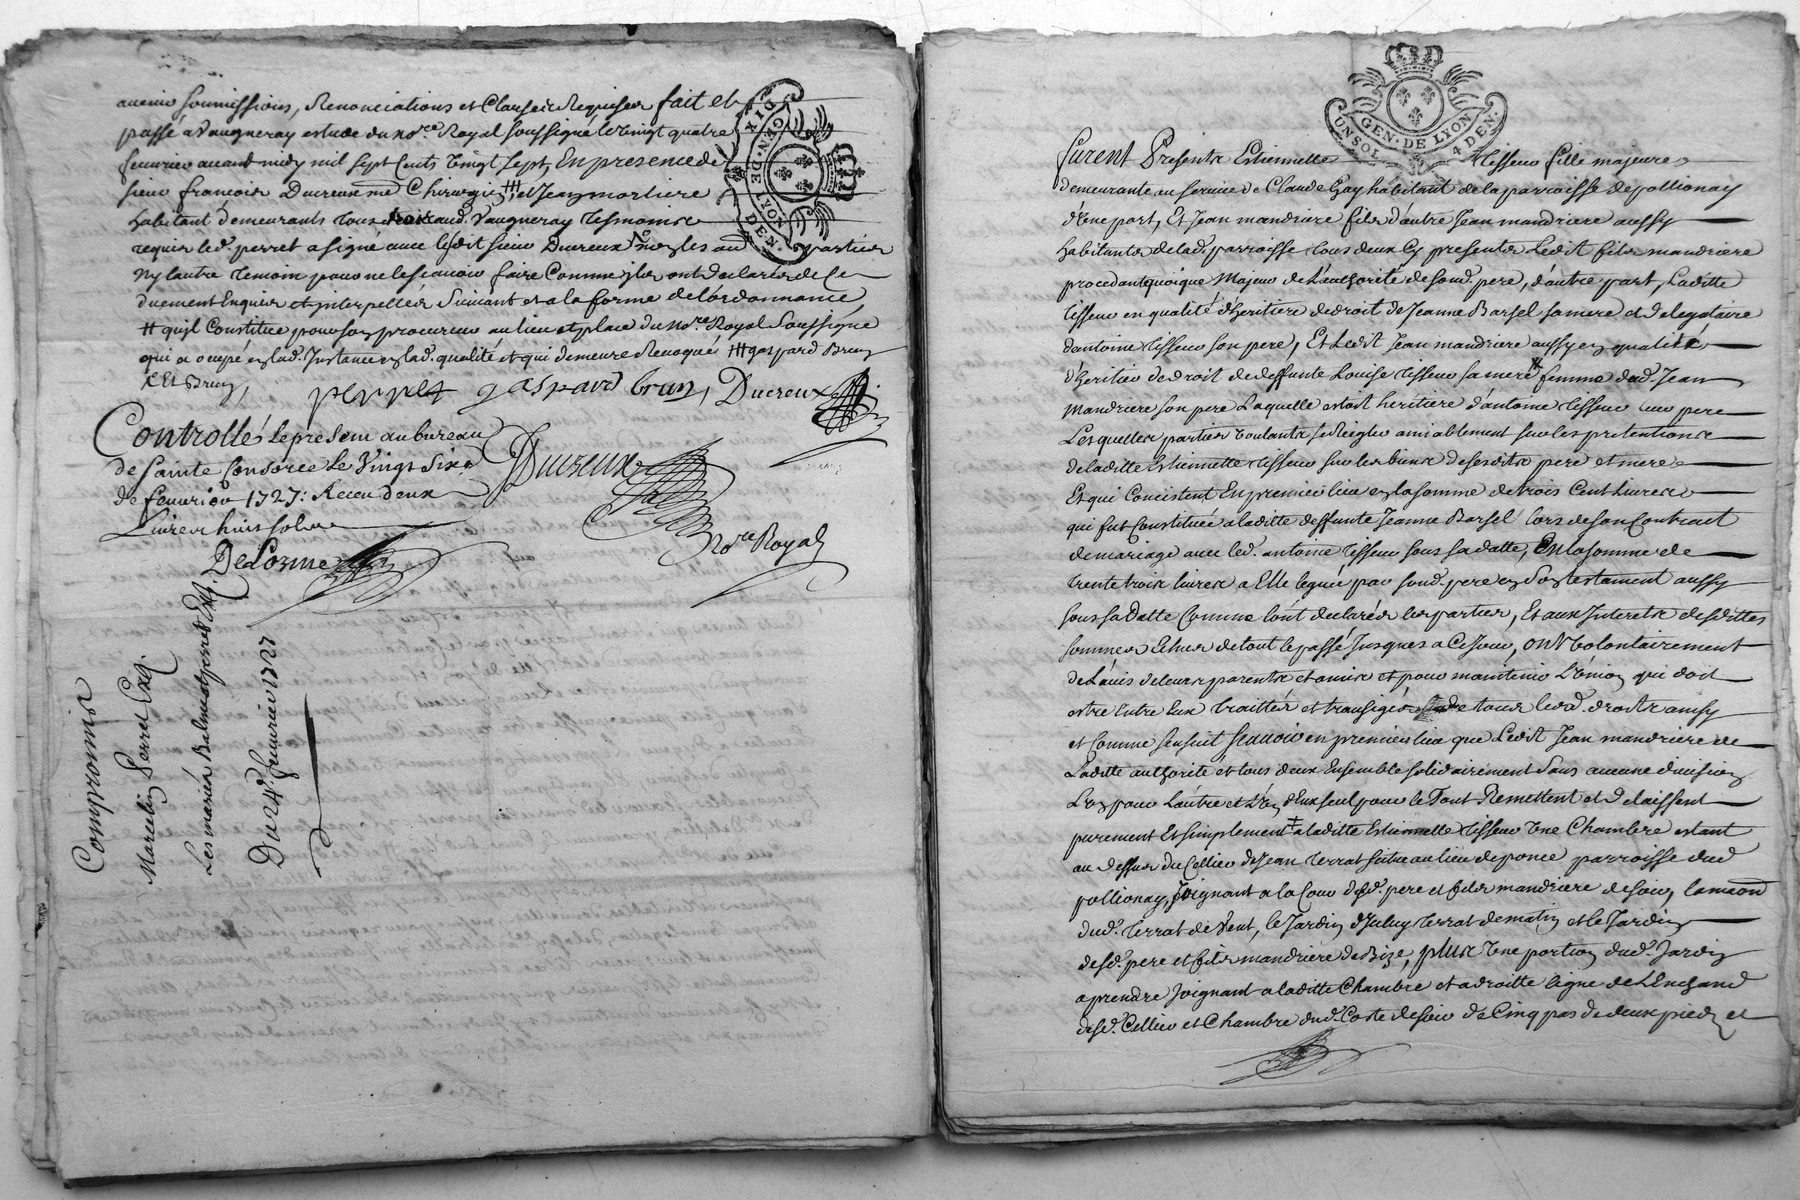 soumissions, Renonciations et Clauses Requises fait et
passé a Vaugneray estude du no.re Royal soussigné le vingt quatre
feuvrier auant midy mil sept cents vingt sept, En presence de
sieur françois Ducreux me Chirurgien ╫ et Jean mortiere
habitant demeurants tous aud. Vaugneray tesmoins
requis led. perret a signé auec ledit sieur Ducreux les au. parties
ny lautre temoin pour ne le scauoir faire Comme jls ont declarés de ce
duement Enquis et interpellés Suiuant et a la forme de lordonnance,
╫ quil Constitue pour son procureur au lieu et place du no.re Royal Soussigné
qui a occupé en lad. Instance en lad. qualité et qui demeure Reuoqué ╫ gaspard Brun
Et Brun,
perret gaspard brun, Ducreux
Controllé le present au bureau
de sainte Consorce le vingt six
de feuurier 1727: Receu deux
Liures huit sols
Ducreux
No.re Royal
DeLorme
Compromis
Marcelin Perret Exq.
Les mariés Balme et perret Exq.
Du 24e feuurier 1727
DIX
GEN. DE LYON
DEN.
GEN. DE LYON
UN SOL 4 DEN.
furent Presents Estiennette tisseur fille majeure
demeurante au seruice de Claude Gay habitant de la parroisse de pollionay
d'une part, Et Jean mandriere fils d'autre Jean mandriere aussy
habitants de lad. parroisse tous deux Cy presents Ledit fils mandriere
procedant quoique Majeur de L'authorité de sond. pere, d'autre part, Laditte
tisseur en qualité d'heritiere de droit de Jeanne Barsel sa mere et de legataire
d'antoine tisseur son pere, Et Ledit Jean mandriere aussy en qualité
d'heritier de droit de deffunte Louise tisseur sa mere femme dud. Jean
Mandriere son pere Laquelle estoit heritiere d'antoine tisseur pere
Lesquelles parties voulants se Regler amiablement sur les pretentions
de laditte Estiennette tisseur sur les biens desdits pere et mere
Et qui Consistent En premier lieu en la somme de trois Cent Liures
qui fut Constituée a laditte deffunte Jeanne Barsel lors de son Contract
de mariage auec led. antoine tisseur sous sa datte, En la somme de
trente trois liures a Elle leguée par sond. pere en son testament aussy
sous sa datte Comme lont declarés les parties, Et aux Interets desdittes
sommes Echus de tout le passé Jusques a Ce Jour, ont volontairement
de L'auis de leurs parents et amis et pour maintenir L'union qui doit
estre Entre Eux traittés et transigés de tous lesd. droits ainsy
et Comme sensuit scauoir en premier lieu que Ledit Jean mandriere de
Laditte authorité et tous deux Ensemble solidairement Sans aucune diuision
L'un pour L'autre et L'un d'Eux seul pour le Tout Remettent et delaissent
purement Et simplement a laditte Estiennette tisseur Une Chambre estant
au dessus du Cellier de Jean terrat situe au lieu de ponce parroisse dud
pollionay, Joignant a la Cour desd. pere et fils mandriere de soir, la maison
dud. terrat de Vent, le Jardin d'Juluy terrat de matin et le Jardin
desd. pere et fils mandriere de Bize, plus Une portion dud. Jardin
a prendre Joignant a laditte Chambre et a droitte ligne de
desd. Cellier et Chambre dud. Coste de soir de Cinq pas de deux pieds et